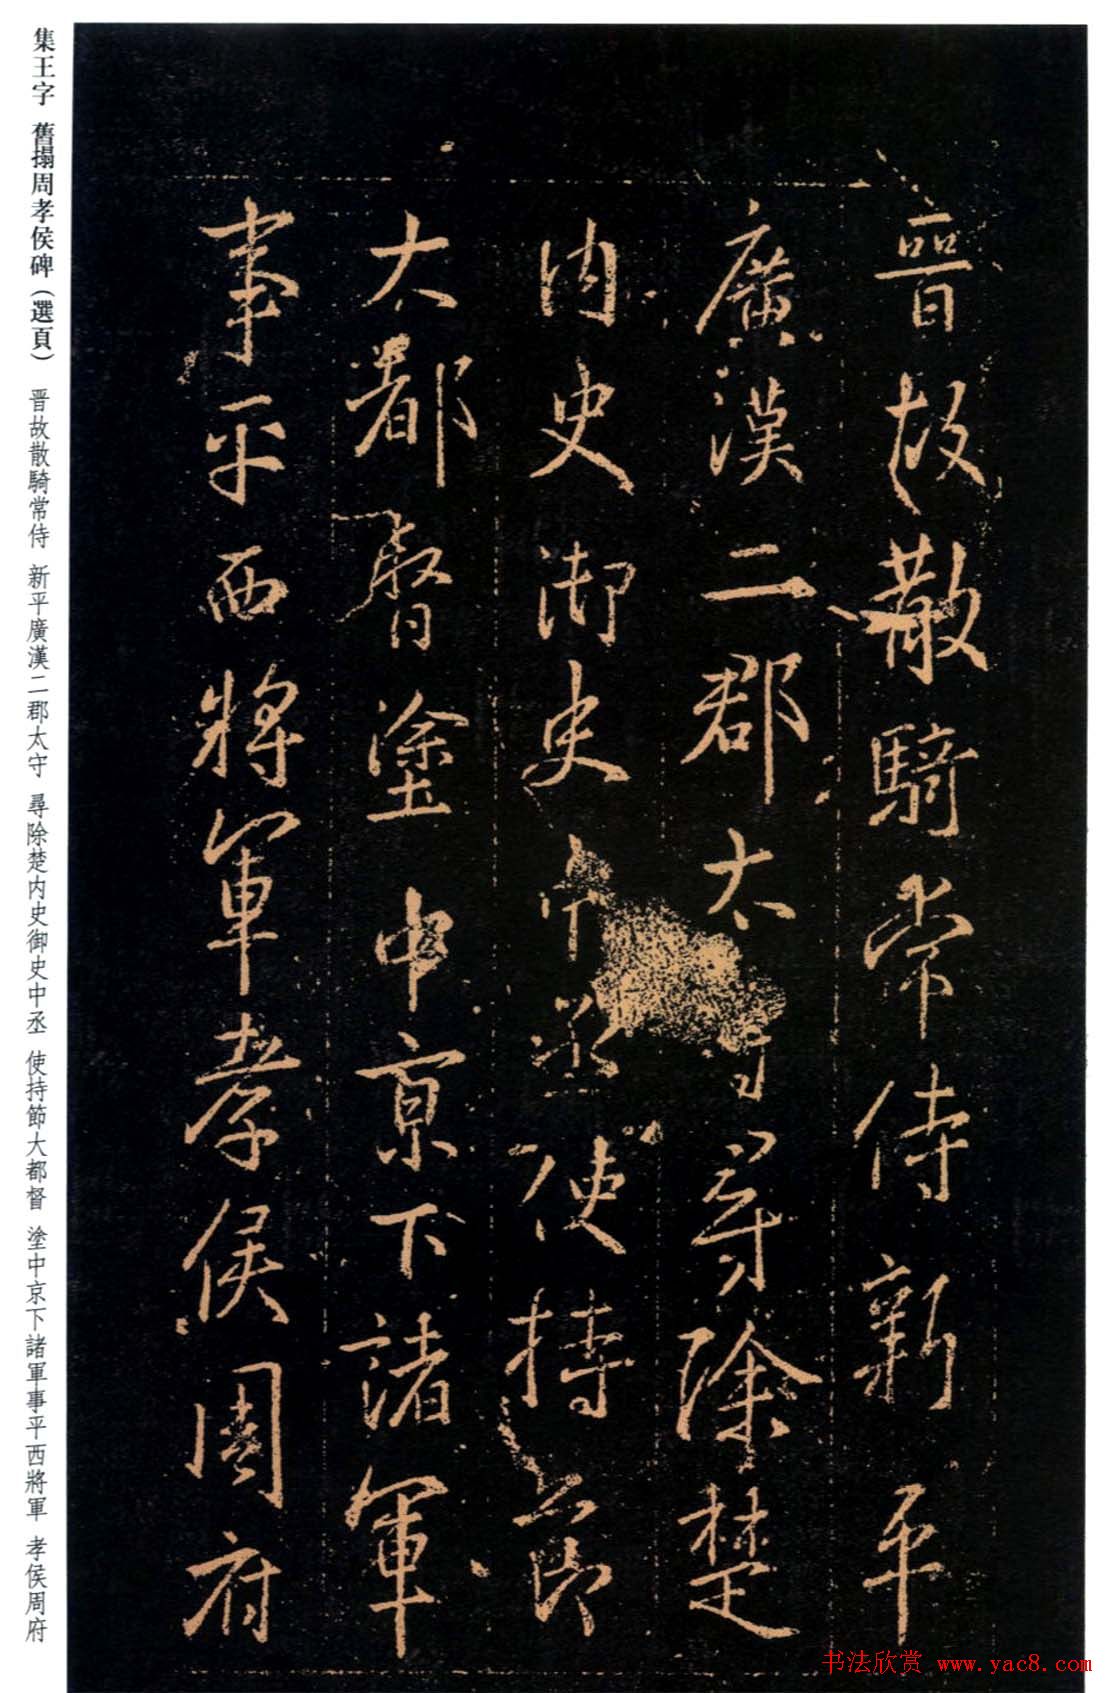 晉故散騎常侍新平
廣漢二郡太守尋除楚
內史御史中丞使持節
大都督塗中京下諸軍
事平西將軍孝侯周府
集王字 舊搨周孝侯碑（選頁） 晋故散騎常侍 新平廣漢二郡太守 尋除楚内史御史中丞 使持節大都督 塗中京下諸軍事平西將軍 孝侯周府
书法欣赏 www.yac8.com